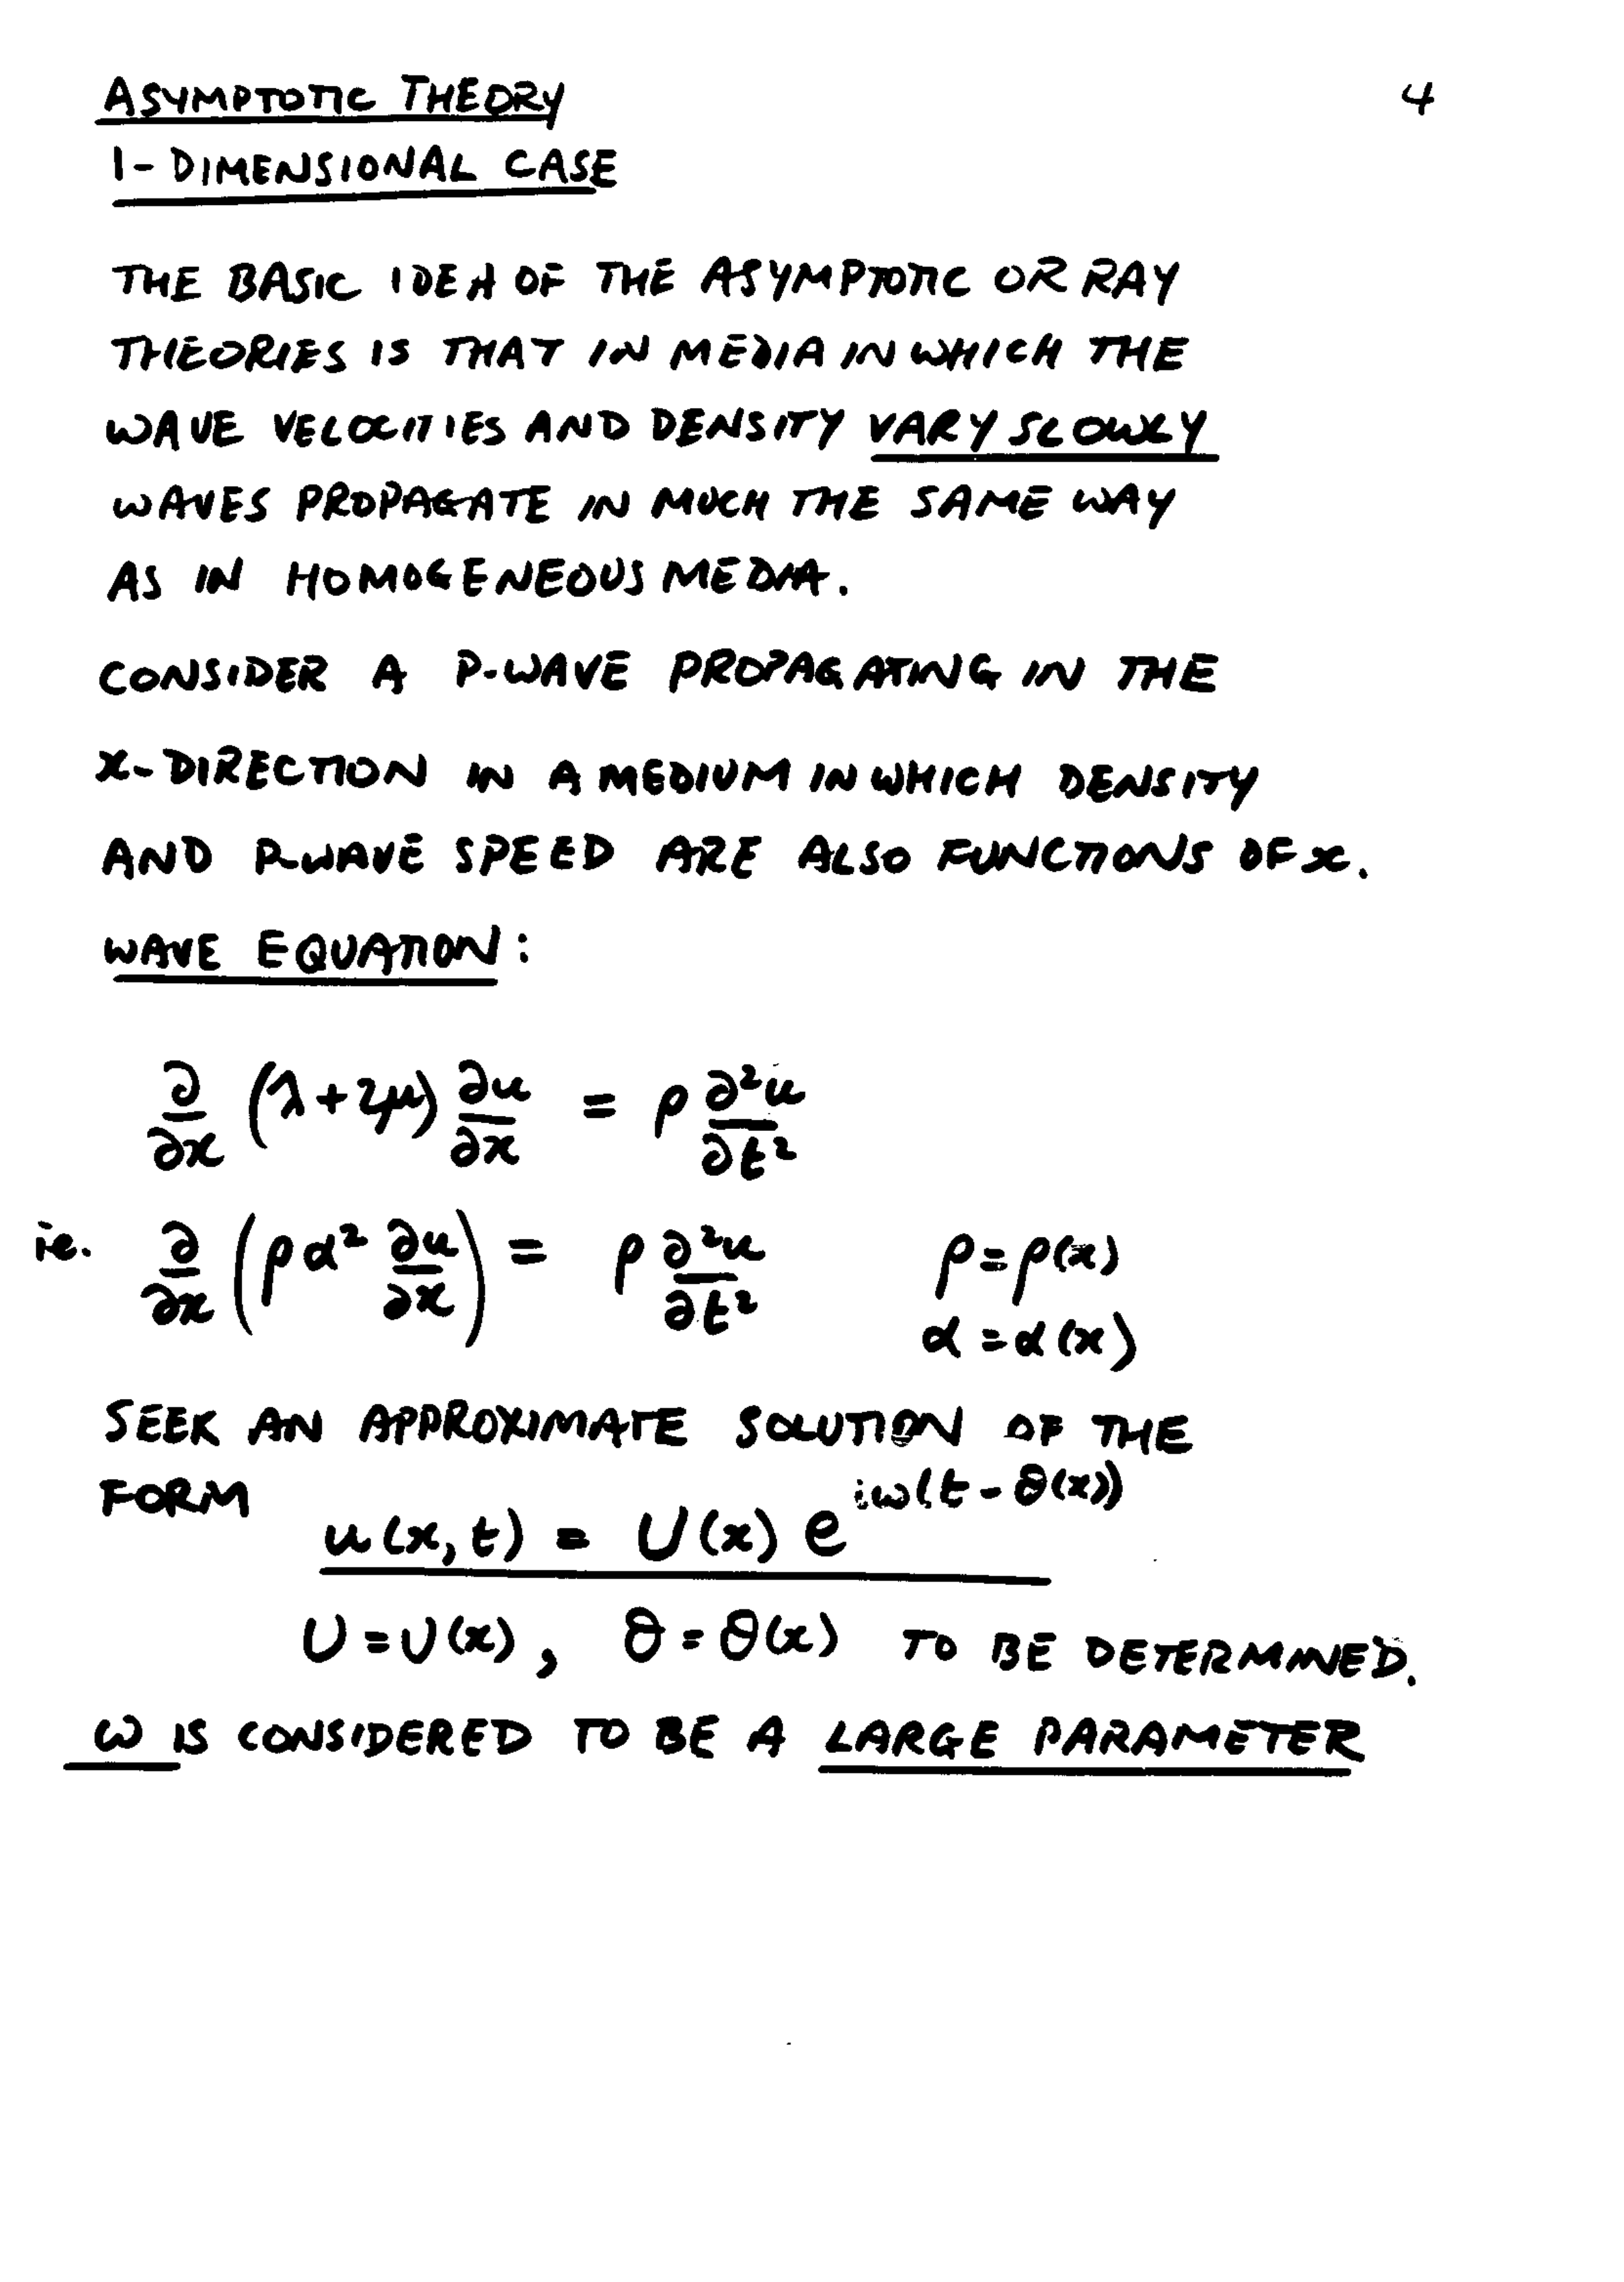 ASYMPTOTIC THEORY 4
1-DIMENSIONAL CASE
THE BASIC IDEA OF THE ASYMPTOTIC OR RAY
THEORIES IS THAT IN MEDIA IN WHICH THE
WAVE VELOCITIES AND DENSITY VARY SLOWLY
WAVES PROPAGATE IN MUCH THE SAME WAY
AS IN HOMOGENEOUS MEDIA.
CONSIDER A P-WAVE PROPAGATING IN THE
x-DIRECTION IN A MEDIUM IN WHICH DENSITY
AND P-WAVE SPEED ARE ALSO FUNCTIONS OF x.
WAVE EQUATION:
∂/∂x (λ+2μ) ∂u/∂x = ρ ∂²u/∂t²
ie. ∂/∂x (ρα² ∂u/∂x) = ρ ∂²u/∂t² ρ=ρ(x)
α=α(x)
SEEK AN APPROXIMATE SOLUTION OF THE
FORM
u(x,t) = U(x) e^{iω(t-θ(x))}
U=U(x), θ=θ(x) TO BE DETERMINED.
ω IS CONSIDERED TO BE A LARGE PARAMETER